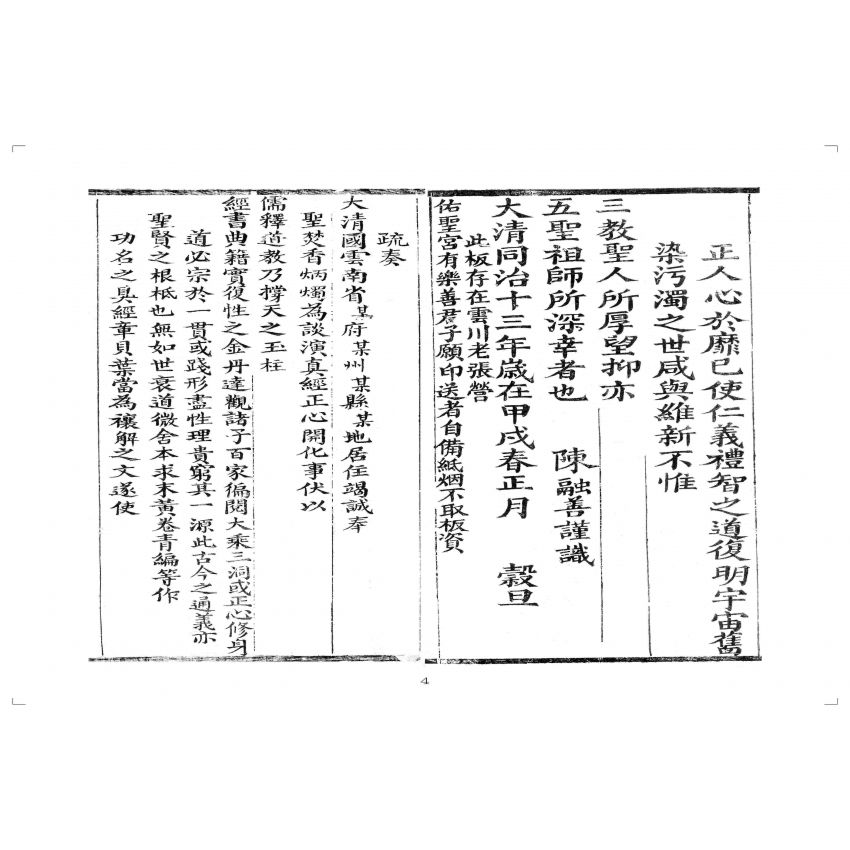 正人心於靡已使仁義禮智之道復明宇宙舊
染污濁之世咸與維新不惟
三教聖人所厚望抑亦
五聖祖師所深幸者也 陳融善謹識
大清同治十三年歲在甲戌春正月 穀旦
此板存在雲川老張營
佑聖宮有樂善君子願印送者自備紙烟不取板資
疏奏
大清國雲南省某府某州某縣某地居住竭誠奉
聖焚香炳燭為談演真經正心開化事伏以
儒釋道教乃撐天之玉柱
經書典籍實復性之金丹達觀諸子百家徧閱大乘三洞或正心修身
道必宗於一貫或踐形盡性理貴窮其一源此古今之通義亦
聖賢之根柢也無如世衰道微舍本求末黃卷青編等作
功名之具經章貝葉當為禳解之文遂使
4